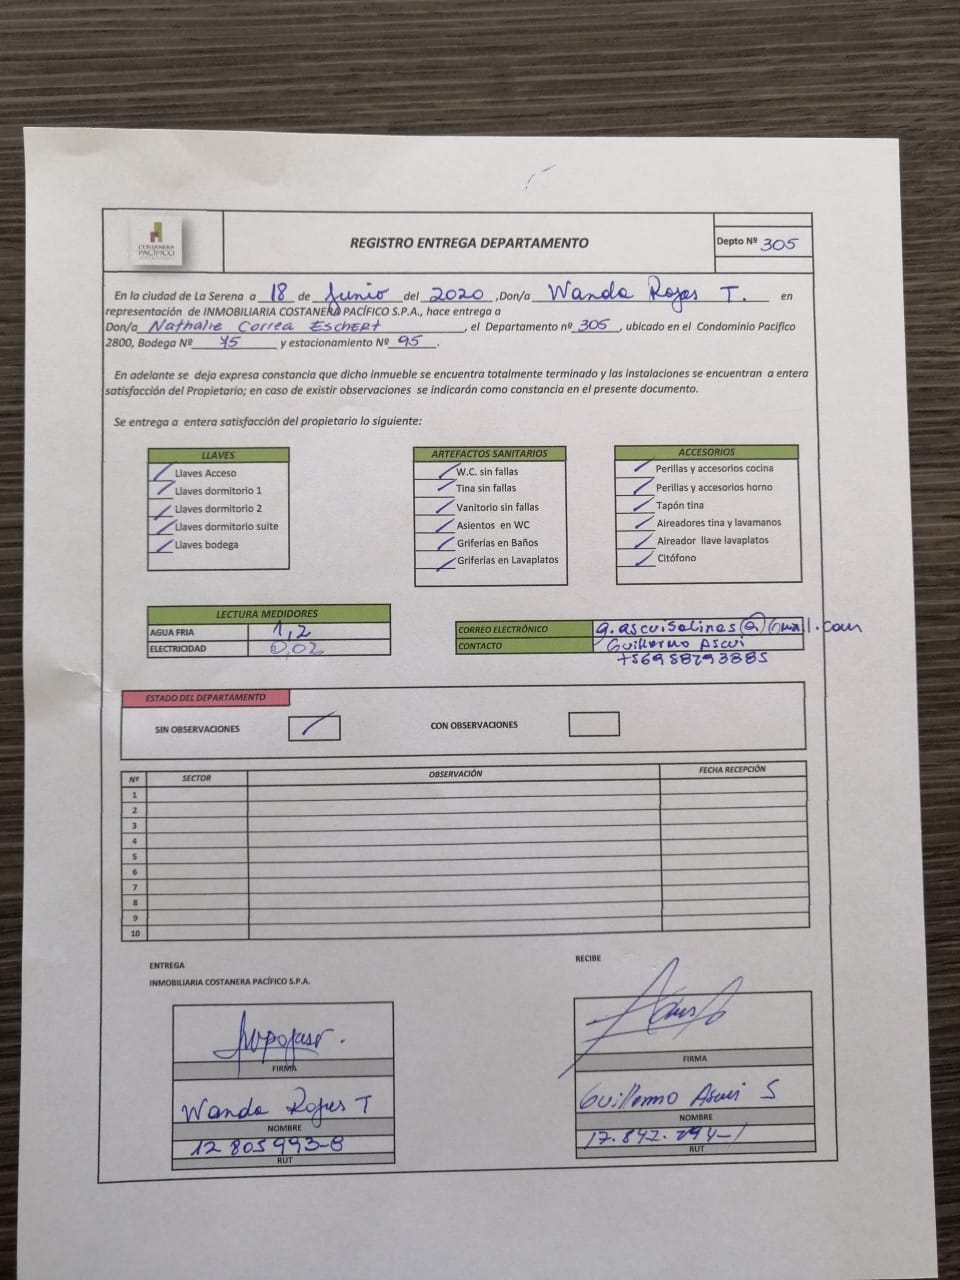 COSTANERA
PACÍFICO
REGISTRO ENTREGA DEPARTAMENTO
Depto Nº 305
En la ciudad de La Serena a 18 de Junio del 2020 ,Don/a Wanda Rojas T. en
representación de INMOBILIARIA COSTANERA PACÍFICO S.P.A., hace entrega a
Don/a Nathalie Correa Eschert , el Departamento nº 305 , ubicado en el Condominio Pacifico
2800, Bodega Nº 75 y estacionamiento Nº 95 .
En adelante se deja expresa constancia que dicho inmueble se encuentra totalmente terminado y las instalaciones se encuentran a entera
satisfacción del Propietario; en caso de existir observaciones se indicarán como constancia en el presente documento.
Se entrega a entera satisfacción del propietario lo siguiente:
LLAVES
Llaves Acceso
Llaves dormitorio 1
Llaves dormitorio 2
Llaves dormitorio suite
Llaves bodega
ARTEFACTOS SANITARIOS
W.C. sin fallas
Tina sin fallas
Vanitorio sin fallas
Asientos en WC
Griferias en Baños
Griferias en Lavaplatos
ACCESORIOS
Perillas y accesorios cocina
Perillas y accesorios horno
Tapón tina
Aireadores tina y lavamanos
Aireador llave lavaplatos
Citófono
LECTURA MEDIDORES
AGUA FRIA 1,2
ELECTRICIDAD 0,02
CORREO ELECTRÓNICO g.ascuisalinas@gmail.com
CONTACTO Guillermo Ascui
+56958793885
ESTADO DEL DEPARTAMENTO
SIN OBSERVACIONES
CON OBSERVACIONES
Nº SECTOR OBSERVACIÓN FECHA RECEPCIÓN
1
2
3
4
5
6
7
8
9
10
ENTREGA
INMOBILIARIA COSTANERA PACÍFICO S.P.A.
FIRMA
Wanda Rojas T
NOMBRE
12 805 993-8
RUT
RECIBE
FIRMA
Guillermo Ascui S
NOMBRE
17.842.294-1
RUT